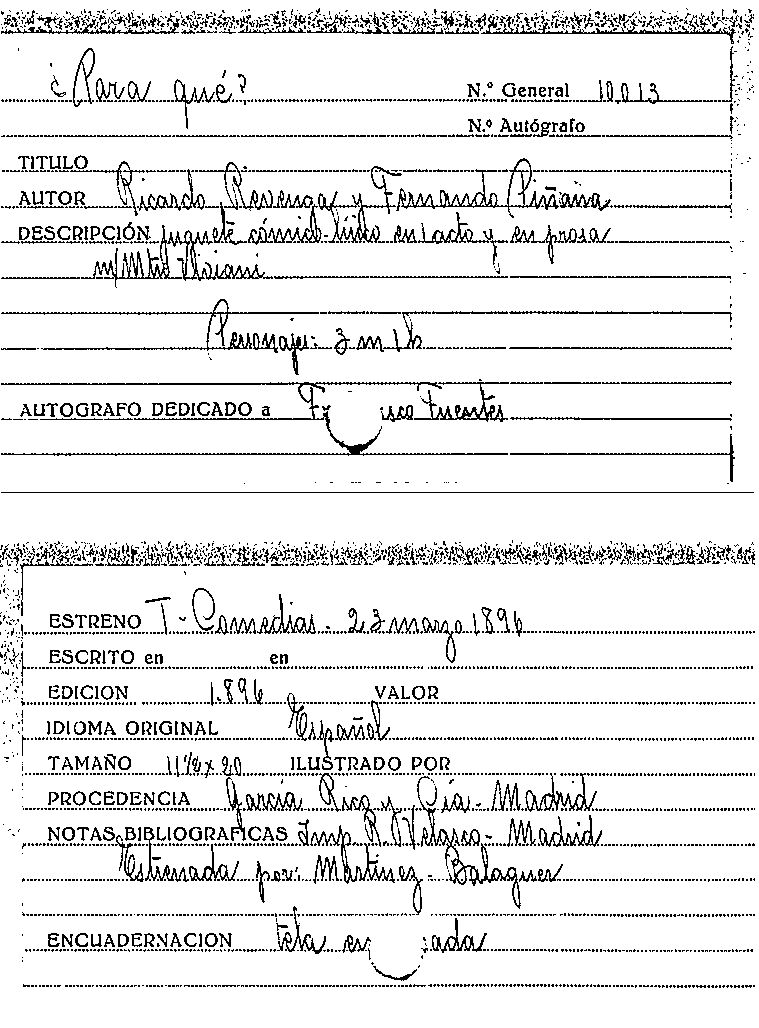 ¿Para qué? N.º General 10.013
N.º Autógrafo
TITULO
AUTOR Ricardo Revenga y Fernando Piñana
DESCRIPCIÓN Juguete cómico-lírico en 1 acto y en prosa
m/Mtro Viviani
Personajes: 3 m 1 h
AUTOGRAFO DEDICADO a Fuentes
ESTRENO T- Comedias - 23 marzo 1896
ESCRITO en en
EDICION 1.896 VALOR
IDIOMA ORIGINAL Español
TAMAÑO 11 1/2 x 20 ILUSTRADO POR
PROCEDENCIA García Rico y Cía - Madrid
NOTAS BIBLIOGRAFICAS Imp. R. Velasco - Madrid
Estrenada por: Martínez - Balaguer
ENCUADERNACION tela